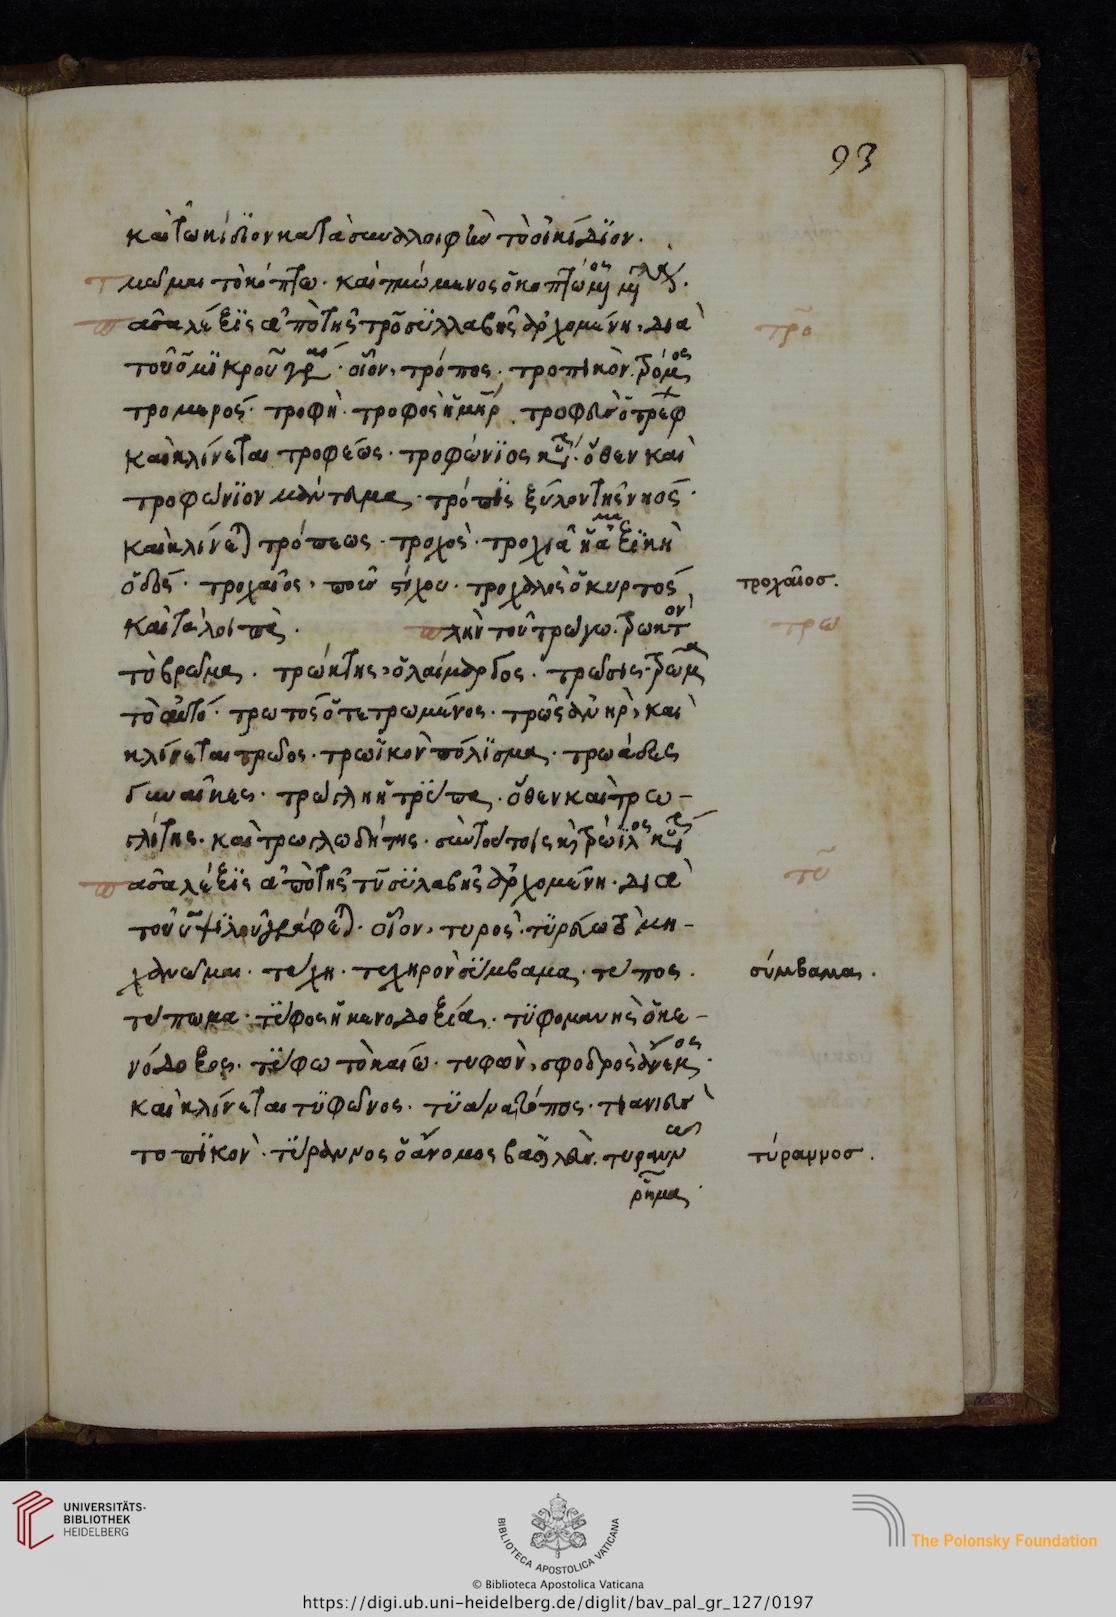 93
καὶ τωκίδιον κατὰ συναλοιφὴν τὸ οἰκίδιον.
τμῶμαι τὸ κόπτω. καὶ τμώμενος ὁ κοπτόμενος
πᾶσα λέξις ἀπὸ τῆς τρο συλλαβῆς ἀρχομένη, διὰ
τρο
τοῦ ο μικροῦ γράφεται. οἷον, τρόπος. τροπικόν. τρόμος
τρομερός. τροφή. τροφὸς ἡ μήτηρ. τροφεὺς ὁ τρέφων
καὶ κλίνεται τροφέως. τροφώνιος κύριον. ὅθεν καὶ
τροφώνιον μάντευμα. τρόπις ξύλον τῆς νηός.
καὶ κλίνεται τρόπεως. τροχός. τροχιὰ ἡ ἁμαξικὴ
ὁδός. τροχαῖος, ποὺς στίχου. τροχαλὸς ὁ κυρτός
τροχαῖοσ.
καὶ τὰ λοιπά. πλὴν τοῦ τρώγω. τρωκτὸν
τρω
τὸ βρῶμα. τρώκτης, ὁ λαίμαργος. τρῶσις. τρῶμα
τὸ αὐτό. τρωτὸς ὁ τετρωμένος. τρῶς ἀνήρ, καὶ
κλίνεται τρωός. τρωϊκὸν πόλισμα. τρωάδες
γυναῖκες. τρώγλη ἡ τρύπα. ὅθεν καὶ τρω-
γλίτης. καὶ τρωγλωδήτης. σὺν τούτοις καὶ τρώϊλος κύριον
πᾶσα λέξις ἀπὸ τῆς τυ συλαβῆς ἀρχομένη. διὰ
τυ
τοῦ υ ψιλοῦ γράφεται. οἷον, τυρός. τυρεύω τὸ μη-
χανῶμαι. τύχη. τυχηρὸν σύμβαμα. τύπος.
σύμβαμα.
τύπωμα. τύφος ἡ κενοδοξία. τυφομανὴς ὁ κε-
νόδοξος. τύφω τὸ καίω. τυφών, σφοδρὸς ἄνεμος.
καὶ κλίνεται τυφῶνος. τύανα τόπος. τυανεὺς
τοπικόν. τύραννος ὁ ἄνομος βασιλεύς. τυραννῶ
τύραννοσ.
ῥῆμα.
UNIVERSITÄTS-
BIBLIOTHEK
HEIDELBERG
BIBLIOTECA APOSTOLICA VATICANA
The Polonsky Foundation
© Biblioteca Apostolica Vaticana
https://digi.ub.uni-heidelberg.de/diglit/bav_pal_gr_127/0197